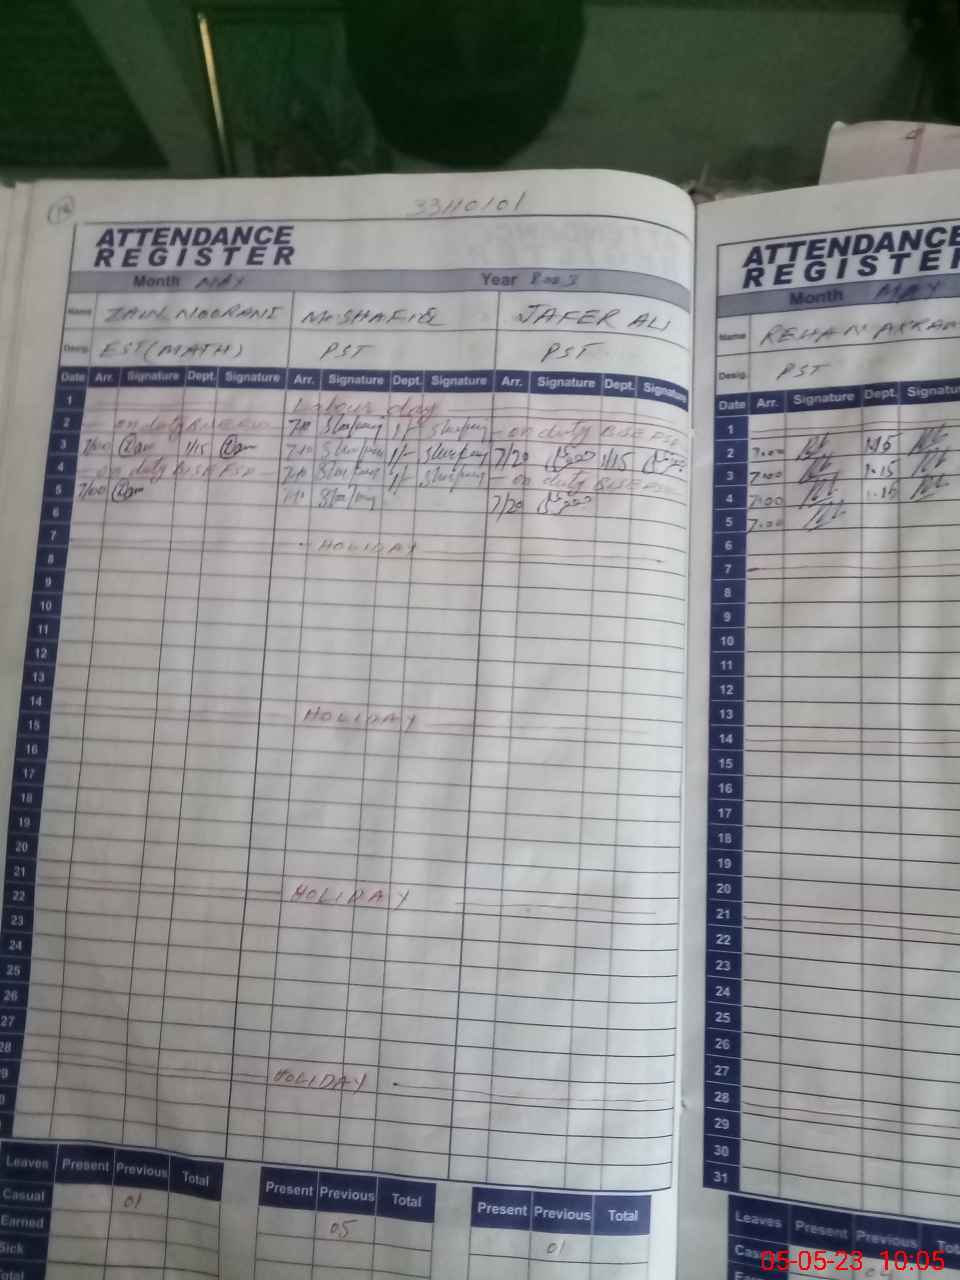 33110101
ATTENDANCE
REGISTER
Month MAY Year 2023
Name ZAIN NOORANI M. SHAFIQ JAFER ALI
Desig. EST (MATH) PST PST
Date Arr. Signature Dept. Signature Arr. Signature Dept. Signature Arr. Signature Dept. Signature
1 Labour day
2 on duty BISE FSD 7/10 on duty BISE FSD
3 7/00 1/15 7/10 7/20 1/15
4 on duty BISE FSD 7/10 on duty BISE FSD
5 7/00 7/10 7/20
6
7 HOLIDAY
8
9
10
11
12
13
14 HOLIDAY
15
16
17
18
19
20
21 HOLIDAY
22
23
24
25
26
27
28 HOLIDAY
Leaves Present Previous Total Present Previous Total Present Previous Total
Casual 01 05 01
Earned
Sick
Total
ATTENDANCE
REGISTER
Month MAY
Name REHAN AKRAM
Desig. PST
Date Arr. Signature Dept.
1
2 7:00 1:15
3 7:00 1:15
4 7:00 1:15
5 7:00
6
7
8
9
10
11
12
13
14
15
16
17
18
19
20
21
22
23
24
25
26
27
28
29
30
31
Leaves Present Previous
05-05-23 10:05